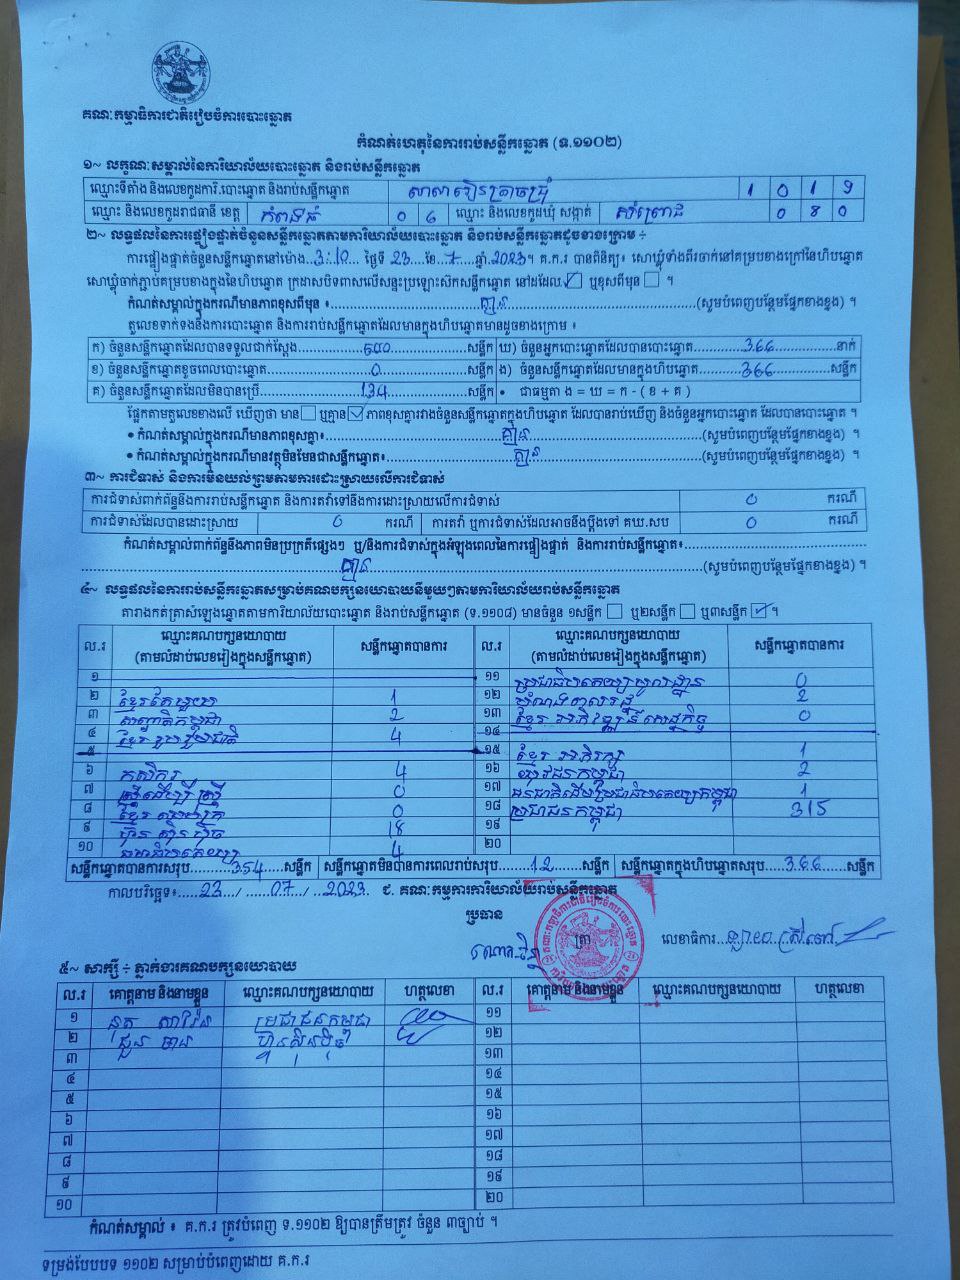 គណៈកម្មាធិការជាតិរៀបចំការបោះឆ្នោត
កំណត់ហេតុនៃការរាប់សន្លឹកឆ្នោត (ទ.១១០២)
១~ លក្ខណៈសម្គាល់នៃការិយាល័យបោះឆ្នោត និងរាប់សន្លឹកឆ្នោត
ឈ្មោះទីតាំង និងលេខកូដការិ.បោះឆ្នោត និងរាប់សន្លឹកឆ្នោត សាលារៀន 1 0 1 9
ឈ្មោះ និងលេខកូដរាជធានី ខេត្ត កំពង់ធំ 0 6 ឈ្មោះ និងលេខកូដឃុំ សង្កាត់ សំព្រោជ 0 8 0
២~ លទ្ធផលនៃការផ្ទៀងផ្ទាត់ចំនួនសន្លឹកឆ្នោតតាមការិយាល័យបោះឆ្នោត និងរាប់សន្លឹកឆ្នោតដូចខាងក្រោម ÷
ការផ្ទៀងផ្ទាត់ចំនួនសន្លឹកឆ្នោតនៅម៉ោង 3:10 ថ្ងៃទី 23 ខែ 7 ឆ្នាំ 2023។ គ.ក.រ បានពិនិត្យ៖ សោឃ្លុំទាំងពីរចាក់នៅគម្របខាងក្រៅនៃហិបឆ្នោត
សោឃ្លុំចាក់ភ្ជាប់គម្របខាងក្នុងនៃហិបឆ្នោត ក្រដាសបិទពាសលើសន្ទះប្រឡោះស៊កសន្លឹកឆ្នោត នៅដដែល ☑ ឬខុសពីមុន ☐ ។
កំណត់សម្គាល់ក្នុងករណីមានភាពខុសពីមុន ៖ គ្មាន (សូមបំពេញបន្ថែមផ្នែកខាងខ្នង) ។
តួលេខទាក់ទងនឹងការបោះឆ្នោត និងការរាប់សន្លឹកឆ្នោតដែលមានក្នុងហិបឆ្នោតមានដូចខាងក្រោម ៖
ក) ចំនួនសន្លឹកឆ្នោតដែលបានទទួលជាក់ស្តែង 500 សន្លឹក ឃ) ចំនួនអ្នកបោះឆ្នោតដែលបានបោះឆ្នោត 366 នាក់
ខ) ចំនួនសន្លឹកឆ្នោតខូចពេលបោះឆ្នោត 0 សន្លឹក ង) ចំនួនសន្លឹកឆ្នោតដែលមានក្នុងហិបឆ្នោត 366 សន្លឹក
គ) ចំនួនសន្លឹកឆ្នោតដែលមិនបានប្រើ 134 សន្លឹក • ជាធម្មតា ង = ឃ = ក - ( ខ + គ )
ផ្អែកតាមតួលេខខាងលើ ឃើញថា មាន ☐ ឬគ្មាន ☑ ភាពខុសគ្នារវាងចំនួនសន្លឹកឆ្នោតក្នុងហិបឆ្នោត ដែលបានរាប់ឃើញ និងចំនួនអ្នកបោះឆ្នោត ដែលបានបោះឆ្នោត ។
• កំណត់សម្គាល់ក្នុងករណីមានភាពខុសគ្នា៖ គ្មាន (សូមបំពេញបន្ថែមផ្នែកខាងខ្នង) ។
• កំណត់សម្គាល់ក្នុងករណីមានវត្ថុមិនមែនជាសន្លឹកឆ្នោត៖ គ្មាន (សូមបំពេញបន្ថែមផ្នែកខាងខ្នង) ។
៣~ ការជំទាស់ និងការមិនយល់ព្រមតាមការដោះស្រាយលើការជំទាស់
ការជំទាស់ពាក់ព័ន្ធនឹងការរាប់សន្លឹកឆ្នោត និងការតវ៉ាទៅនឹងការដោះស្រាយលើការជំទាស់ 0 ករណី
ការជំទាស់ដែលបានដោះស្រាយ 0 ករណី ការតវ៉ា ឬការជំទាស់ដែលអាចនឹងប្តឹងទៅ គឃ.សប 0 ករណី
កំណត់សម្គាល់ពាក់ព័ន្ធនឹងភាពមិនប្រក្រតីផ្សេងៗ ឬ/និងការជំទាស់ក្នុងអំឡុងពេលនៃការផ្ទៀងផ្ទាត់ និងការរាប់សន្លឹកឆ្នោត៖
គ្មាន (សូមបំពេញបន្ថែមផ្នែកខាងខ្នង) ។
៤~ លទ្ធផលនៃការរាប់សន្លឹកឆ្នោតសម្រាប់គណបក្សនយោបាយនីមួយៗតាមការិយាល័យរាប់សន្លឹកឆ្នោត
តារាងកត់ត្រាសំឡេងឆ្នោតតាមការិយាល័យបោះឆ្នោត និងរាប់សន្លឹកឆ្នោត (ទ.១១០៨) មានចំនួន ១សន្លឹក ☐ ឬ២សន្លឹក ☐ ឬ៣សន្លឹក ☑ ។
ល.រ ឈ្មោះគណបក្សនយោបាយ (តាមលំដាប់លេខរៀងក្នុងសន្លឹកឆ្នោត) សន្លឹកឆ្នោតបានការ ល.រ ឈ្មោះគណបក្សនយោបាយ (តាមលំដាប់លេខរៀងក្នុងសន្លឹកឆ្នោត) សន្លឹកឆ្នោតបានការ
១ ១១ ប្រជាធិបតេយ្យមូលដ្ឋាន 0
២ ខ្មែរតែមួយ 1 ១២ បំណងពលរដ្ឋ 2
៣ សញ្ជាតិកម្ពុជា 2 ១៣ ខ្មែរ អភិវឌ្ឍន៍ សេដ្ឋកិច្ច 0
៤ ខ្មែរ រួបរួមជាតិ 4 ១៤
៥ ១៥ ខ្មែរ អភិរក្ស 1
៦ កសិករ 4 ១៦ យុវជនកម្ពុជា 2
៧ ស្ត្រីដើម្បី ស្ត្រី 0 ១៧ ជនជាតិដើមប្រជាធិបតេយ្យកម្ពុជា 1
៨ ខ្មែរ 0 ១៨ ប្រជាជនកម្ពុជា 315
៩ ហ៊្វុន ស៊ិន ប៉ិច 18 ១៩
១០ ធម្មាធិបតេយ្យ 4 ២០
សន្លឹកឆ្នោតបានការសរុប 354 សន្លឹក សន្លឹកឆ្នោតមិនបានការពេលរាប់សរុប 12 សន្លឹក សន្លឹកឆ្នោតក្នុងហិបឆ្នោតសរុប 366 សន្លឹក
កាលបរិច្ឆេទ៖ 23 / 07 / 2023 ជ. គណៈកម្មការការិយាល័យរាប់សន្លឹកឆ្នោត
ប្រធាន
ត្រា លេខាធិការ
៥~ សាក្សី ÷ ភ្នាក់ងារគណបក្សនយោបាយ
ល.រ គោត្តនាម និងនាមខ្លួន ឈ្មោះគណបក្សនយោបាយ ហត្ថលេខា ល.រ គោត្តនាម និងនាមខ្លួន ឈ្មោះគណបក្សនយោបាយ ហត្ថលេខា
១ ប្រជាជនកម្ពុជា ១១
២ ជួន ហ៊្វុនស៊ិនប៉ិច ១២
៣ ១៣
៤ ១៤
៥ ១៥
៦ ១៦
៧ ១៧
៨ ១៨
៩ ១៩
១០ ២០
កំណត់សម្គាល់ ៖ គ.ក.រ ត្រូវបំពេញ ទ.១១០២ ឱ្យបានត្រឹមត្រូវ ចំនួន ៣ច្បាប់ ។
ទម្រង់បែបបទ ១១០២ សម្រាប់បំពេញដោយ គ.ក.រ